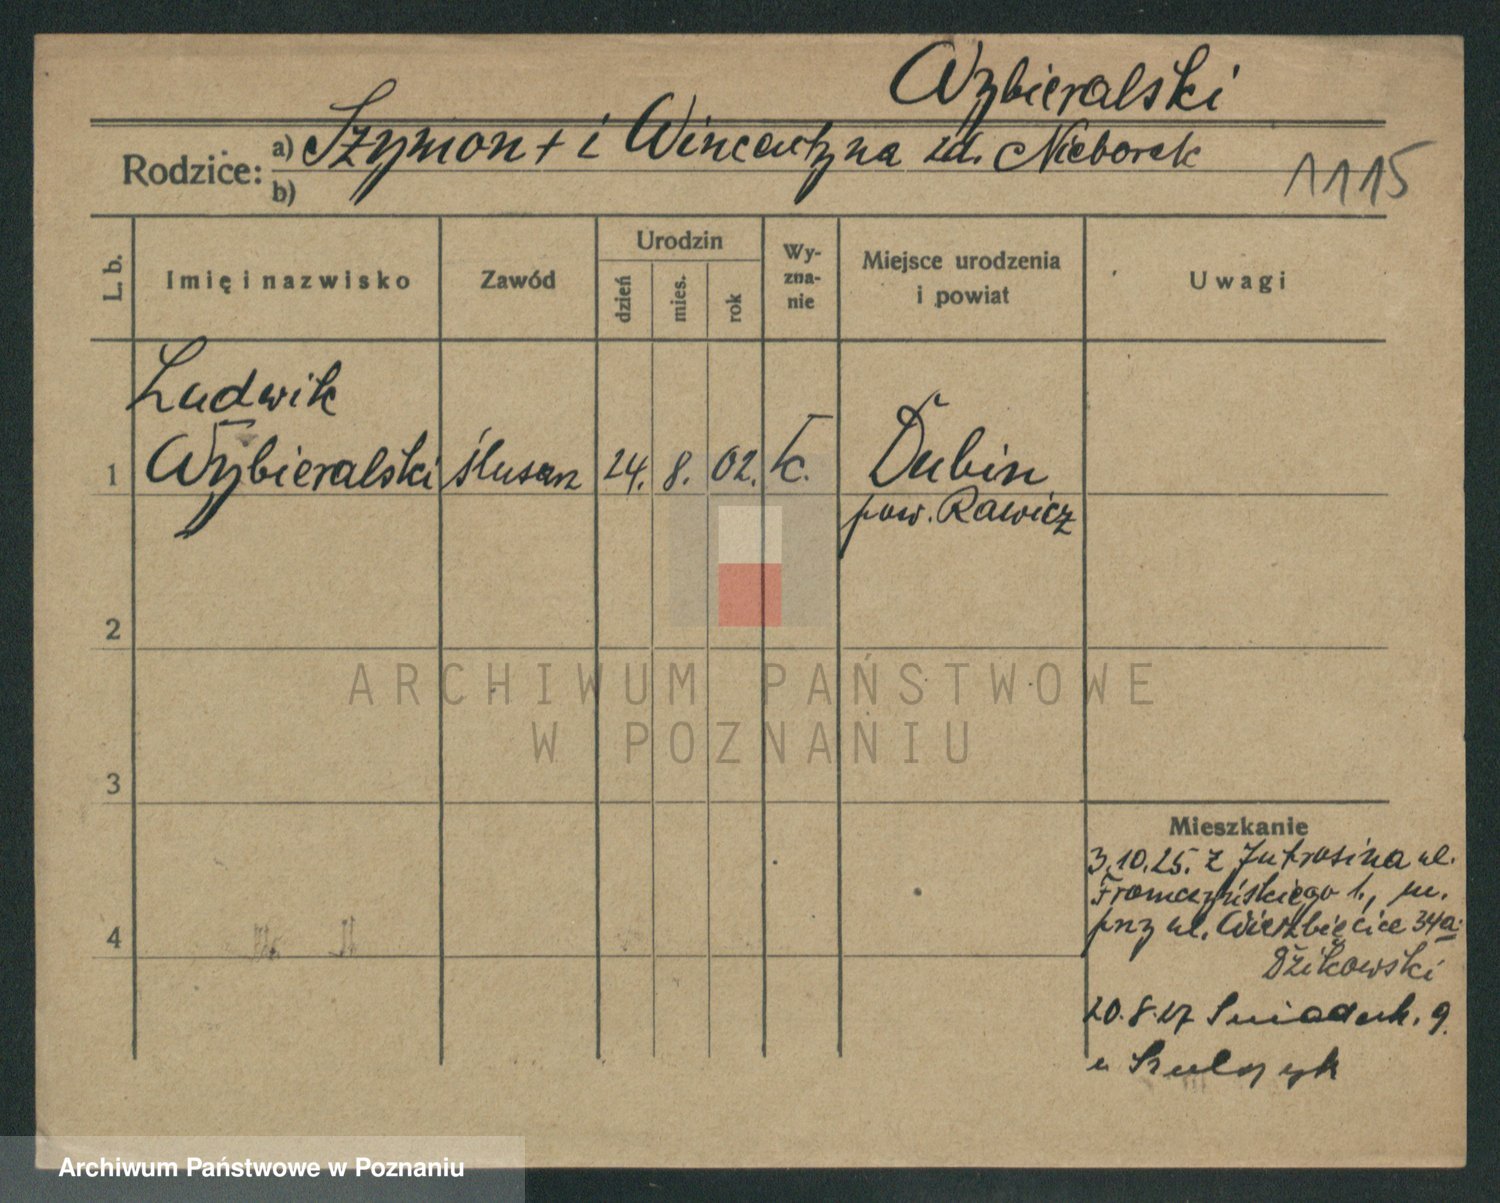 Wybieralski
Rodzice: a) Szymon + i Wincentyna zd. Nieborak
b)
A115
L. b.
Imię i nazwisko
Zawód
Urodzin
dzień
mies.
rok
Wy-
zna-
nie
Miejsce urodzenia
i powiat
Uwagi
Ludwik
1 Wybieralski ślusarz 24. 8. 02. k. Dubin
pow. Rawicz
2
ARCHIWUM PAŃSTWOWE
W POZNANIU
3
Mieszkanie
3.10.25. z Jutrosina ul.
1., m.
4 przy ul. Wierzbięcice 34a
Dzikowski
20.8.27 Śniadeck. 9
u Szulczyk
Archiwum Państwowe w Poznaniu